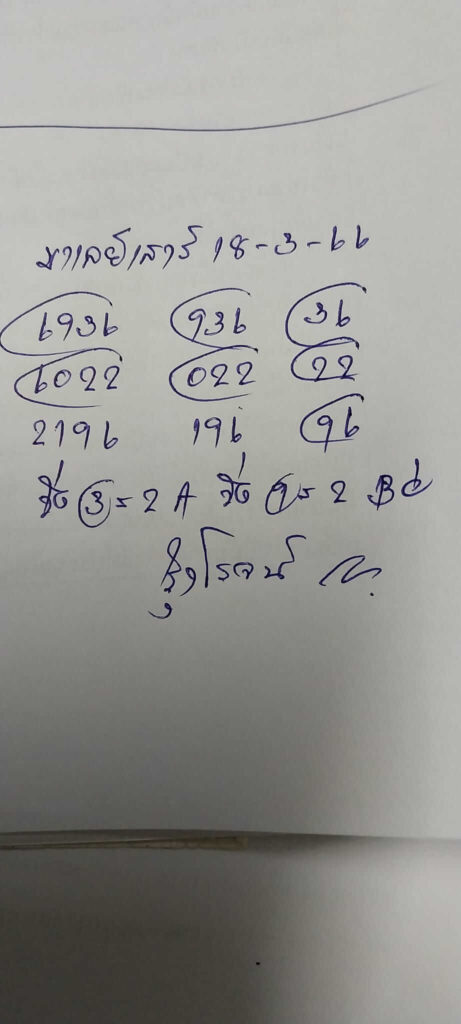 มาเลย์เสาร์ 18-3-66
6936 936 36
6022 022 22
2196 196 96
วิ่ง 3=2A วิ่ง 9=2 B
รุ่งโรจน์